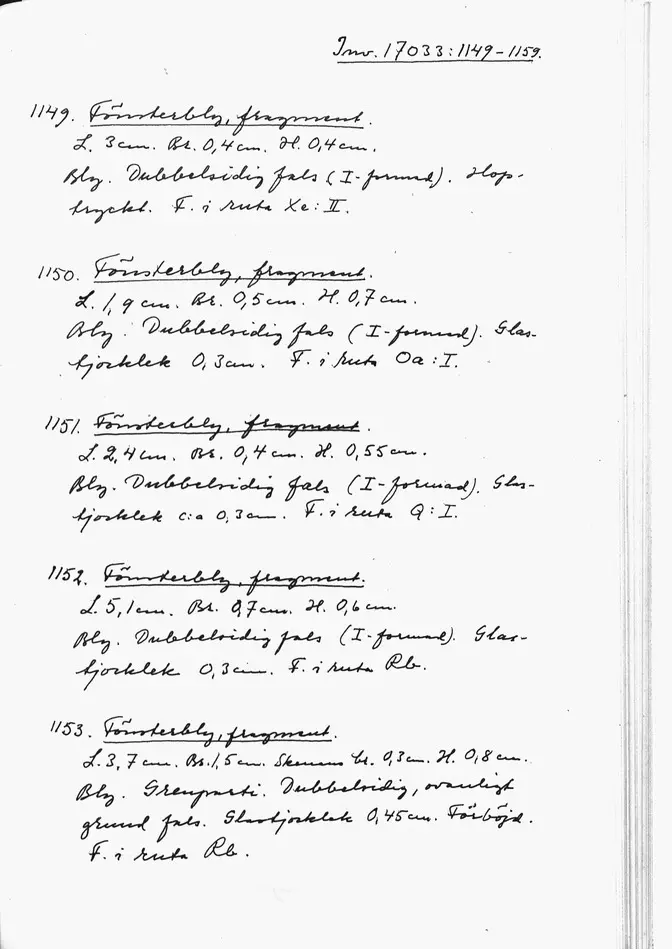 Inv. 17033:1149-1159.
1149. Fönsterbly, fragment.
L. 3 cm. Br. 0,4 cm. H. 0,4 cm.
Bly. Dubbelsidig fals (I-formad). Hop-
tryckt. F. i ruta Xe:II.
1150. Fönsterbly, fragment.
L. 1,9 cm. Br. 0,5 cm. H. 0,7 cm.
Bly. Dubbelsidig fals (I-formad). Glas-
tjocklek 0,3 cm. F. i ruta Oa:I.
1151. Fönsterbly, fragment.
L. 2,4 cm. Br. 0,4 cm. H. 0,55 cm.
Bly. Dubbelsidig fals (I-formad). Glas-
tjocklek c:a 0,3 cm. F. i ruta Q:I.
1152. Fönsterbly, fragment.
L. 5,1 cm. Br. 0,7 cm. H. 0,6 cm.
Bly. Dubbelsidig fals (I-formad). Glas-
tjocklek 0,3 cm. F. i ruta Rb.
1153. Fönsterbly, fragment.
L. 3,7 cm. Br. 1,5 cm. Skenans br. 0,3 cm. H. 0,8 cm.
Bly. Grenparti. Dubbelsidig, ovanligt
grund fals. Glastjocklek 0,45 cm. Förböjd.
F. i ruta Rb.